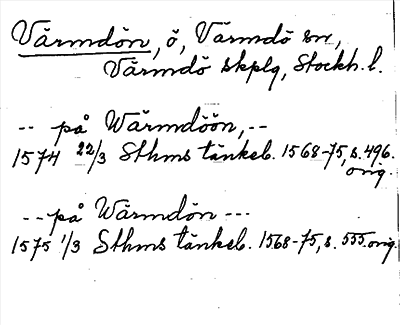 Värmdön, ö, Värmdö sn,
Värmdö skplg, Stockh. l.
-- på Wärmdöön, --
1574 22/3 Sthms tänkeb. 1568-75, s. 496.
orig.
-- på Wärmdön ---
1575 1/3 Sthms tänkeb. 1568-75, s. 555. orig.